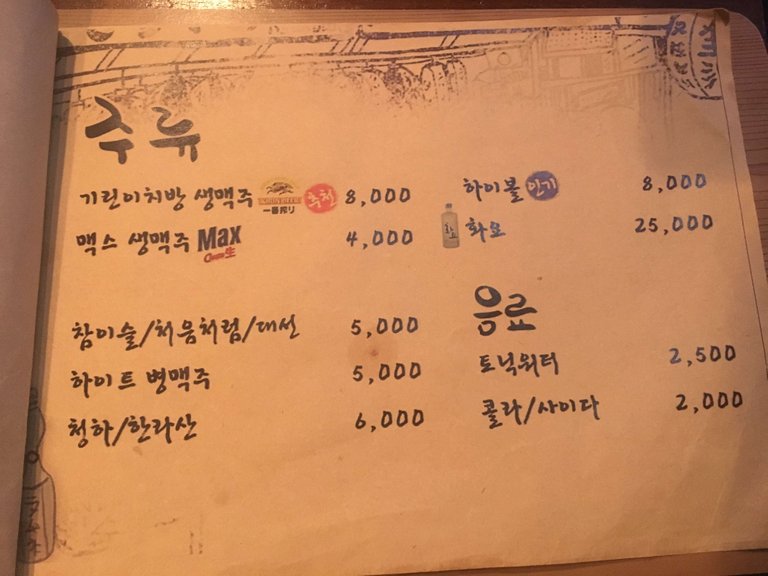 주류
기린이치방 생맥주 KIRIN BEER 一番搾り 추천 8,000
맥스 생맥주 Max 生 4,000
참이슬/처음처럼/대선 5,000
하이트 병맥주 5,000
청하/한라산 6,000
하이볼 인기 8,000
화요 화요 25,000
음료
토닉워터 2,500
콜라/사이다 2,000